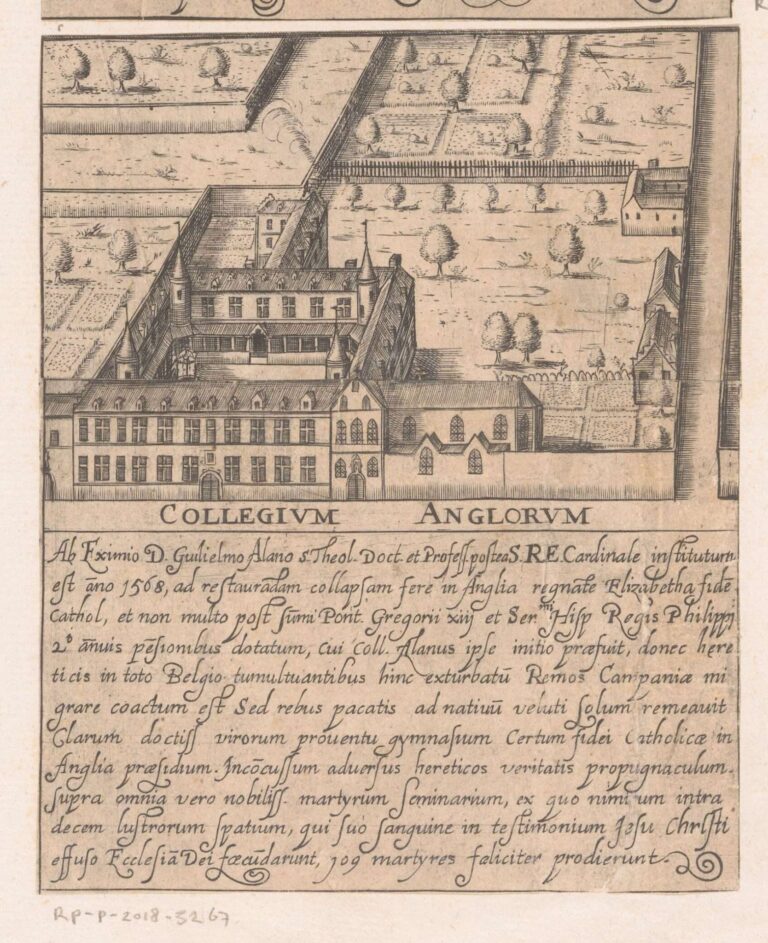 COLLEGIVM ANGLORVM
Ab Eximio D. Gulielmo Alano S. Theol. Doct. et Profess. postea S. R. E. Cardinale institutum
est año 1568, ad restaurãdam collapsam fere in Anglia regnãte Elizabetha fidẽ
Cathol, et non multo post sũmi Pont. Gregorii xiij et Ser.mi Hisp Regis Philippi
2.i añuis pẽsionibus dotatum, cui Coll. Alanus ipse initio præfuit, donec hęre
ticis in toto Belgio tumultuantibus hinc exturbatũ Remos Campaniæ mi
grare coactum est Sed rebus pacatis ad natiuũ veluti solum remeauit
Clarum doctiss virorum prouentu gymnasium Certum fidei Catholicæ in
Anglia præsidium. Incõcussum aduersus hereticos veritatis propugnaculum.
supra omnia vero nobiliss. martyrum seminarium, ex quo nimirum intra
decem lustrorum spatium, qui suo sanguine in testimonium Jesu Christi
effuso Ecclesiã Dei fœcũdarunt, 109 martyres fœliciter prodierunt.
RP-P-2018-3267.